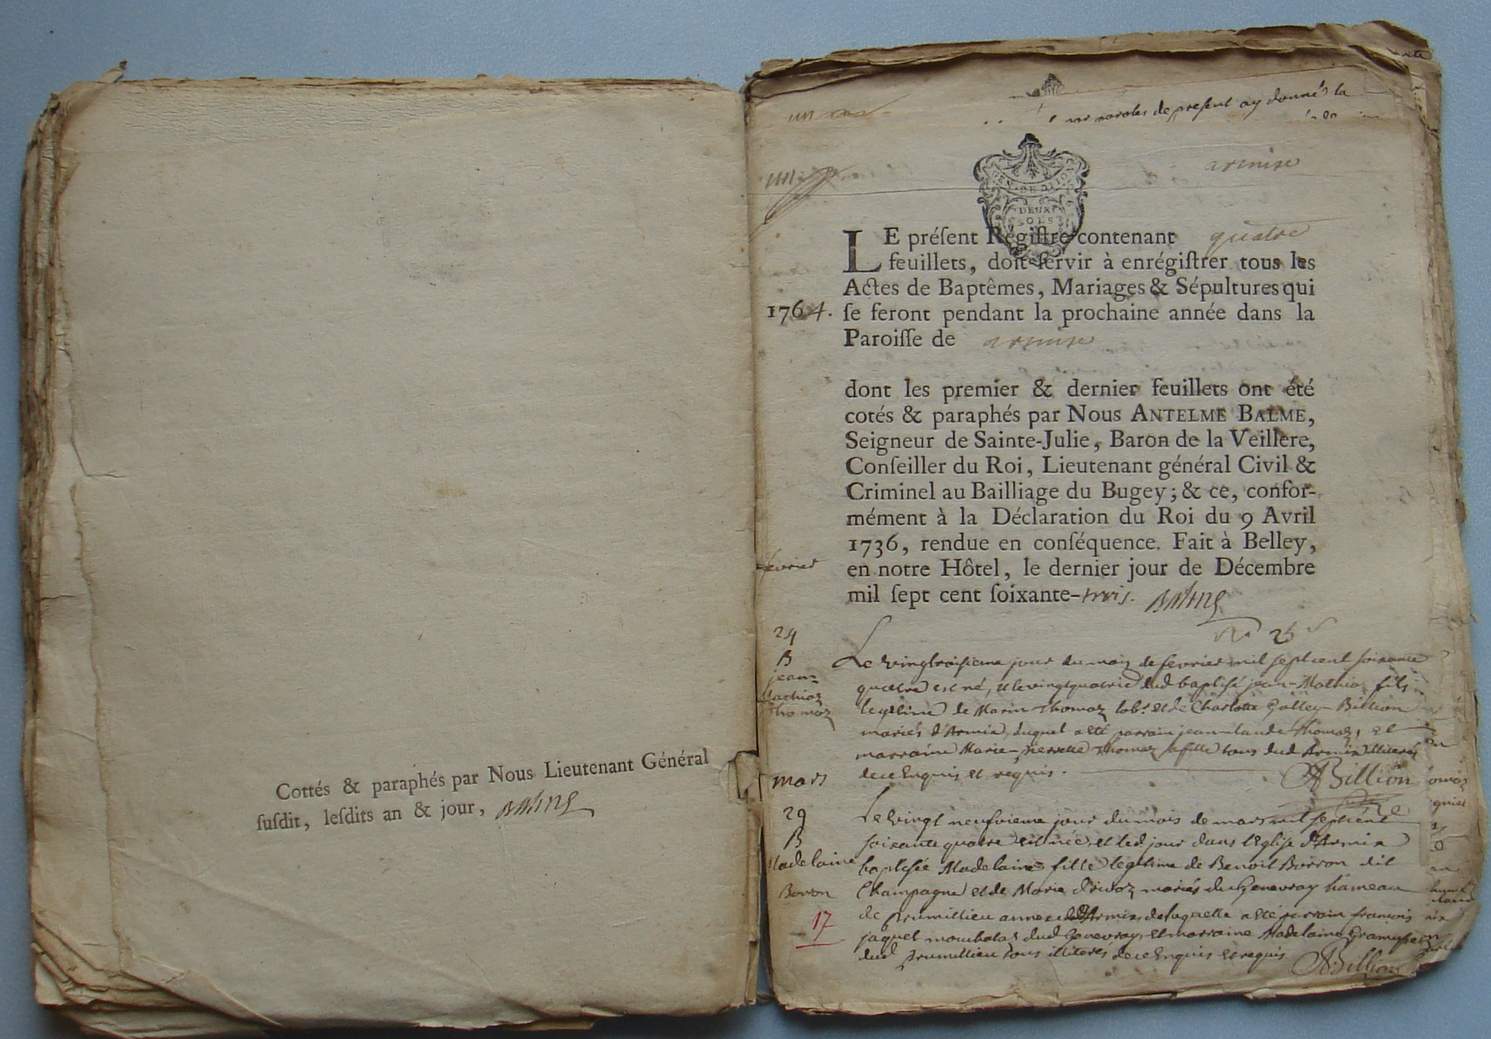 Cottés & paraphés par Nous Lieutenant Général
ſuſdit, leſdits an & jour,
par paroles de preſent ay donnés la
armixe
DEUX
SOLS
LE préſent Régiſtre contenant quatre
feuillets, doit ſervir à enrégiſtrer tous les
Actes de Baptêmes, Mariages & Sépultures qui
1764. ſe feront pendant la prochaine année dans la
Paroiſſe de armixe
dont les premier & dernier feuillets ont été
cotés & paraphés par Nous ANTELME BALME,
Seigneur de Sainte-Julie, Baron de la Veillere,
Conſeiller du Roi, Lieutenant général Civil &
Criminel au Bailliage du Bugey; & ce, confor-
mément à la Déclaration du Roi du 9 Avril
1736, rendue en conſéquence. Fait à Belley,
fevrier
en notre Hôtel, le dernier jour de Décembre
mil ſept cent ſoixante-trois. Balme
24
B
jean-
Mathiaz
Thomaz
Le vingtroisieme jour du mois de fevrier mil septcent soixante
quatre est né, et le vingtquatrie dud baptisé jean-Mathiaz fils
legitime de Marin Thomaz lab.r et de Charlotte Golley-Billion
mariés d'Armix, duquel a eté parrain jean-laude Thomaz, et
marraine Marie-pierrette Thomaz sa fille tous dud Armix illiterés
de ce Enquis et requis.
ABillion
mars
29
B
Madelaine
Borron
17
Le vingt neufvieme jour du mois de mars mil septcent
soixante quatre est née, et led jour dans l'Eglise d'Armix
baptisée Madelaine fille legitime de Benoit Borron dit
Champagne et de Marie mariés du Genevray hameau
de prumillieu annexe d'Armix, de laquelle a eté parrain francois
jaquet dud Genevray, et marraine Madelaine
dud prumillieu tous illiterés de ce Enquis et requis
ABillion